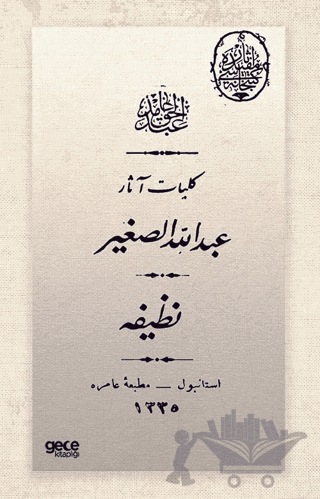 عبد الحق حامد
كليات آثار
عبد الله الصغير
نظيفه
استانبول — مطبعهٔ عامره
١٣٣٥
gece
kitaplığı